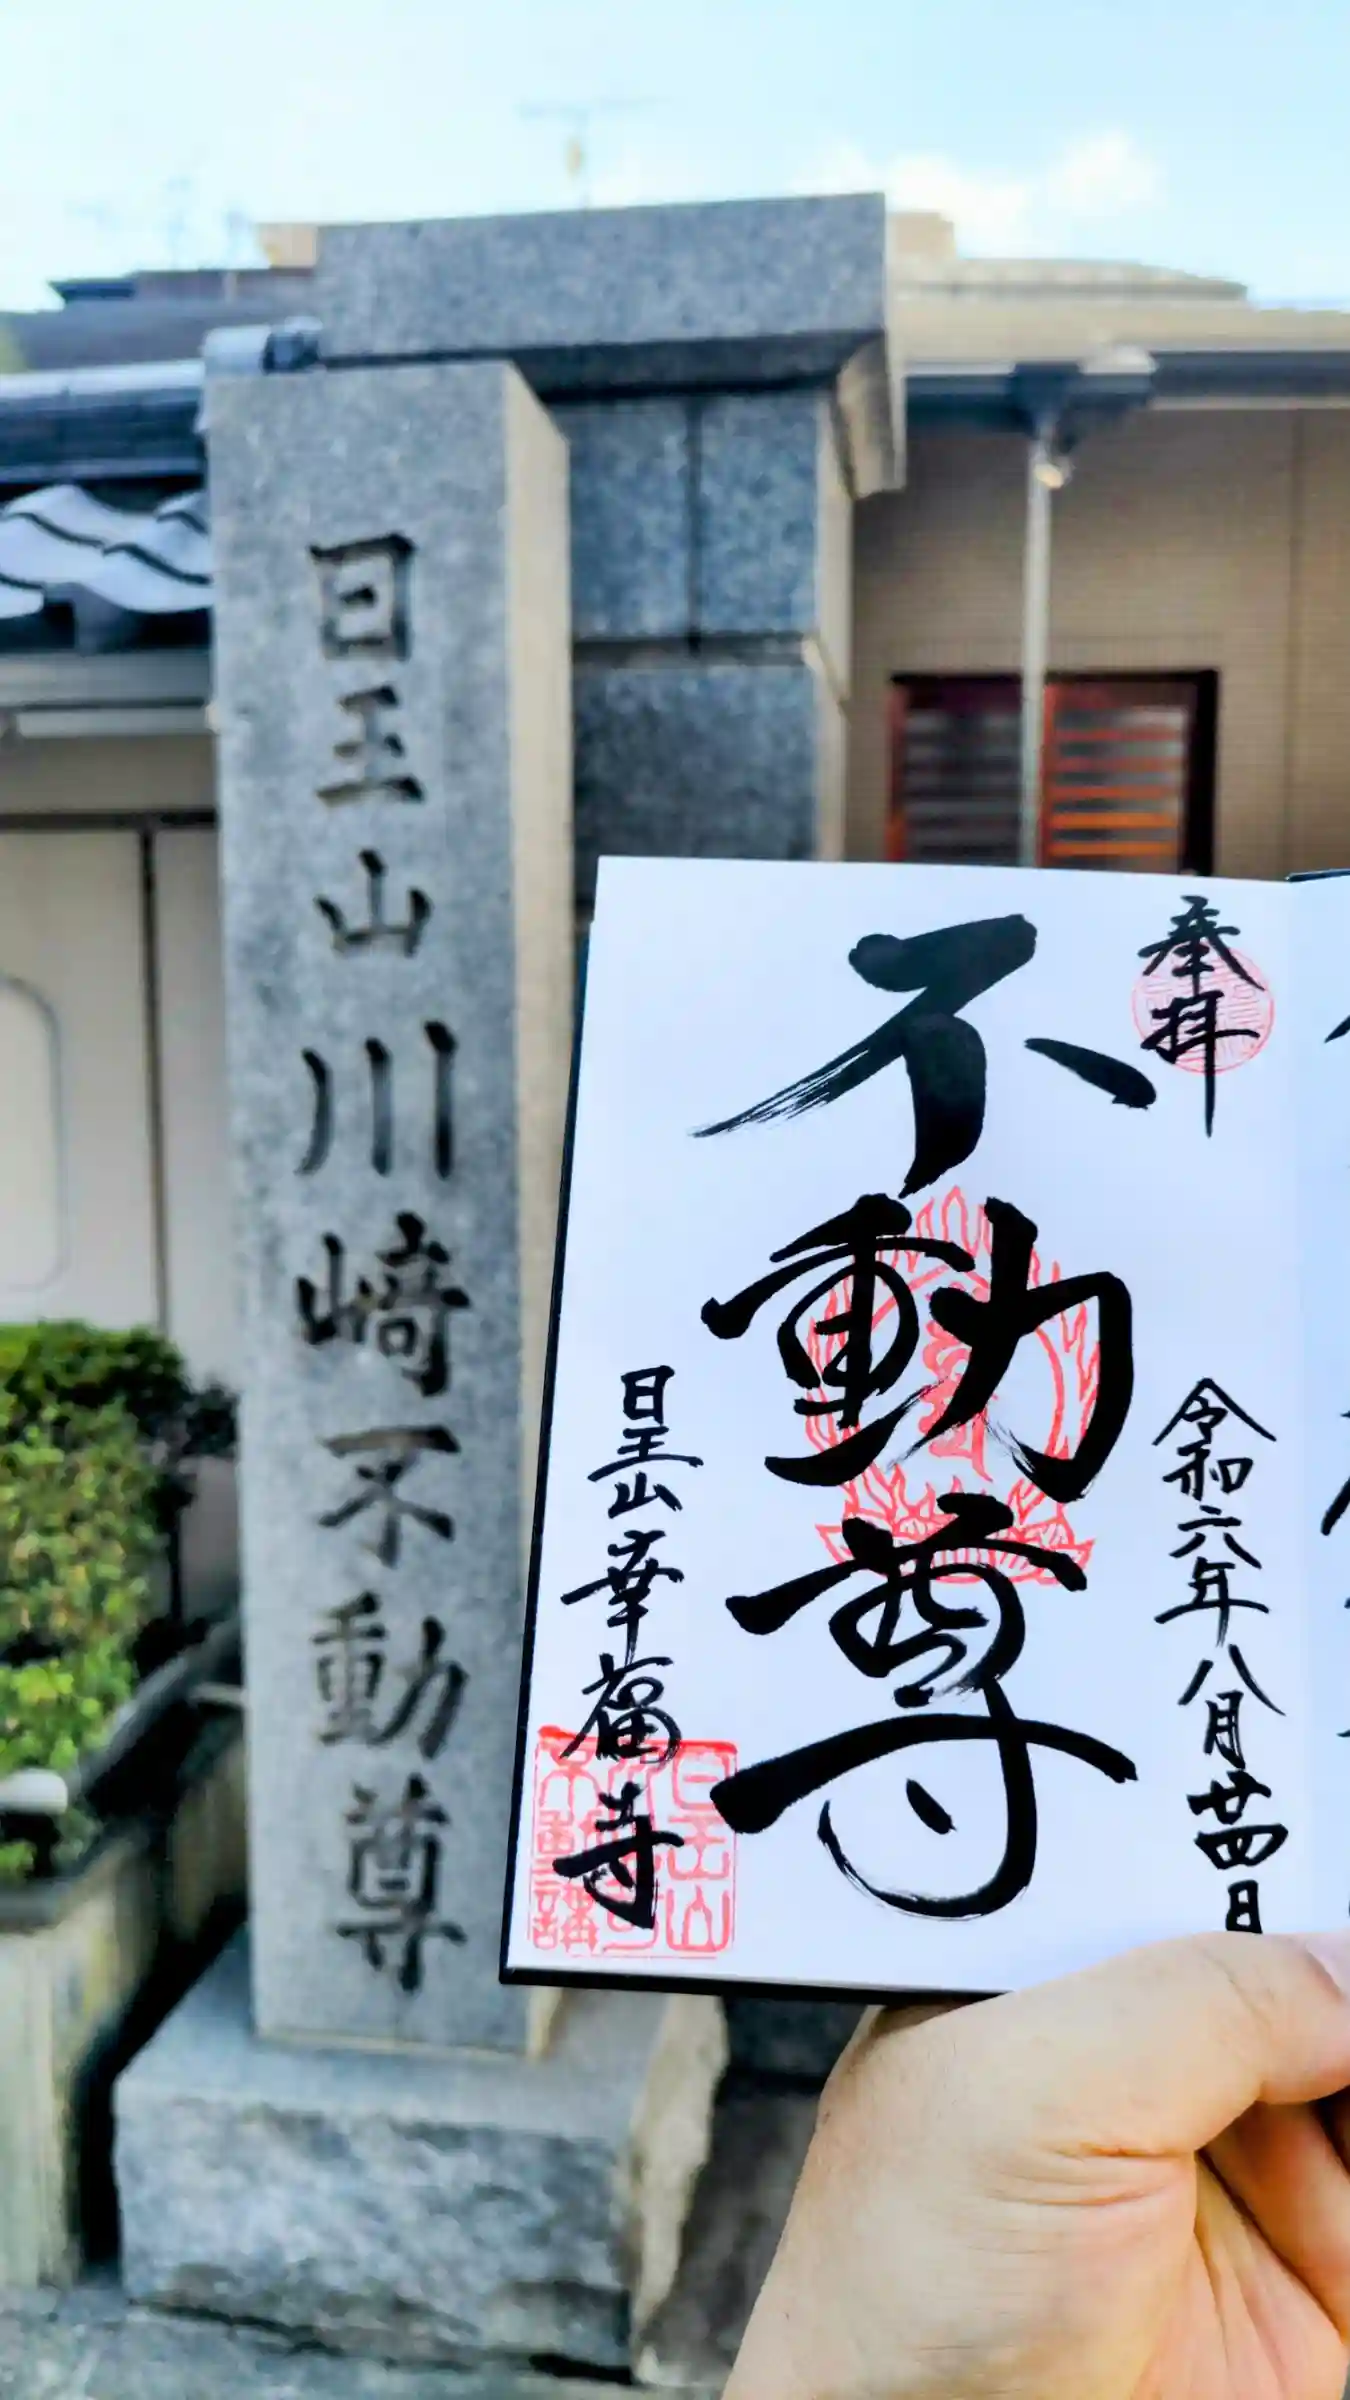 日王山川崎不動尊
奉拝
令和六年八月廿四日
不動尊
日王山幸福寺
日王山
不動講